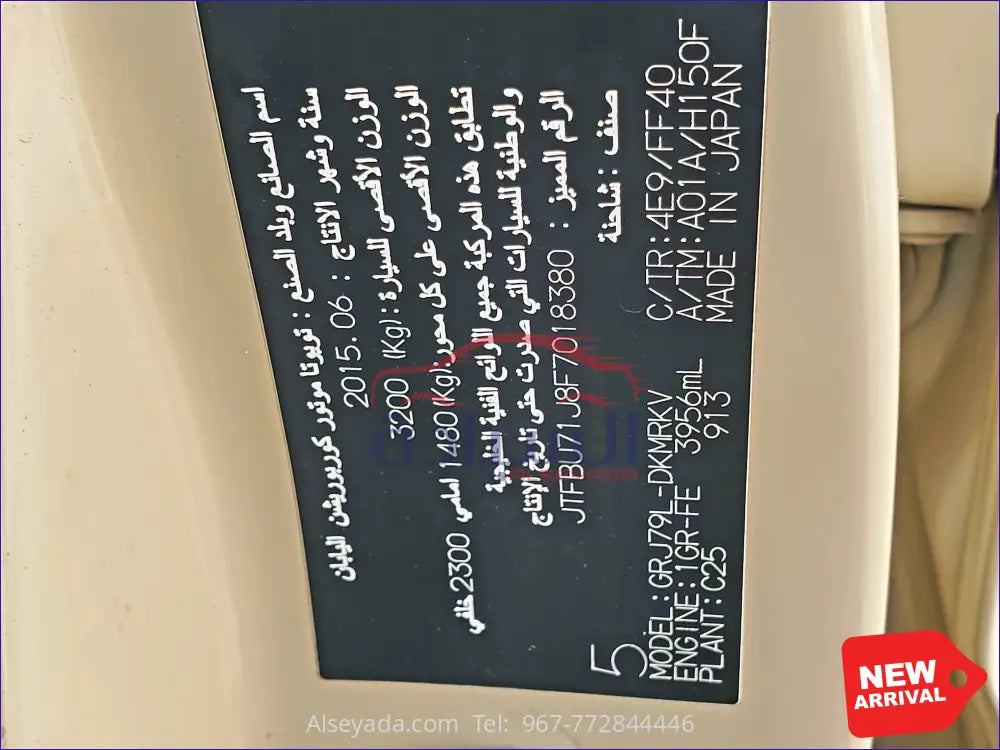 اسم الصانع وبلد الصنع : تويوتا موتور كوربوريشن اليابان
سنة وشهر الانتاج : 2015.06
الوزن الأقصى للسيارة : (Kg) 3200
الوزن الأقصى على كل محور:(Kg) 1480 امامي 2300 خلفي
تطابق هذه المركبة جميع اللوائح الفنية الخليجية
والوطنية للسيارات التي صدرت حتى تاريخ الإنتاج
الرقم المميز : JTFBU71J8F7018380
صنف : شاحنة
5
MODEL:GRJ79L-DKMRKV
ENGINE:1GR-FE 3956mL
PLANT:C25 913
C/TR:4E9/FF40
A/TM:A01A/H150F
MADE IN JAPAN
السيادة
NEW
ARRIVAL
Alseyada.com Tel: 967-772844446